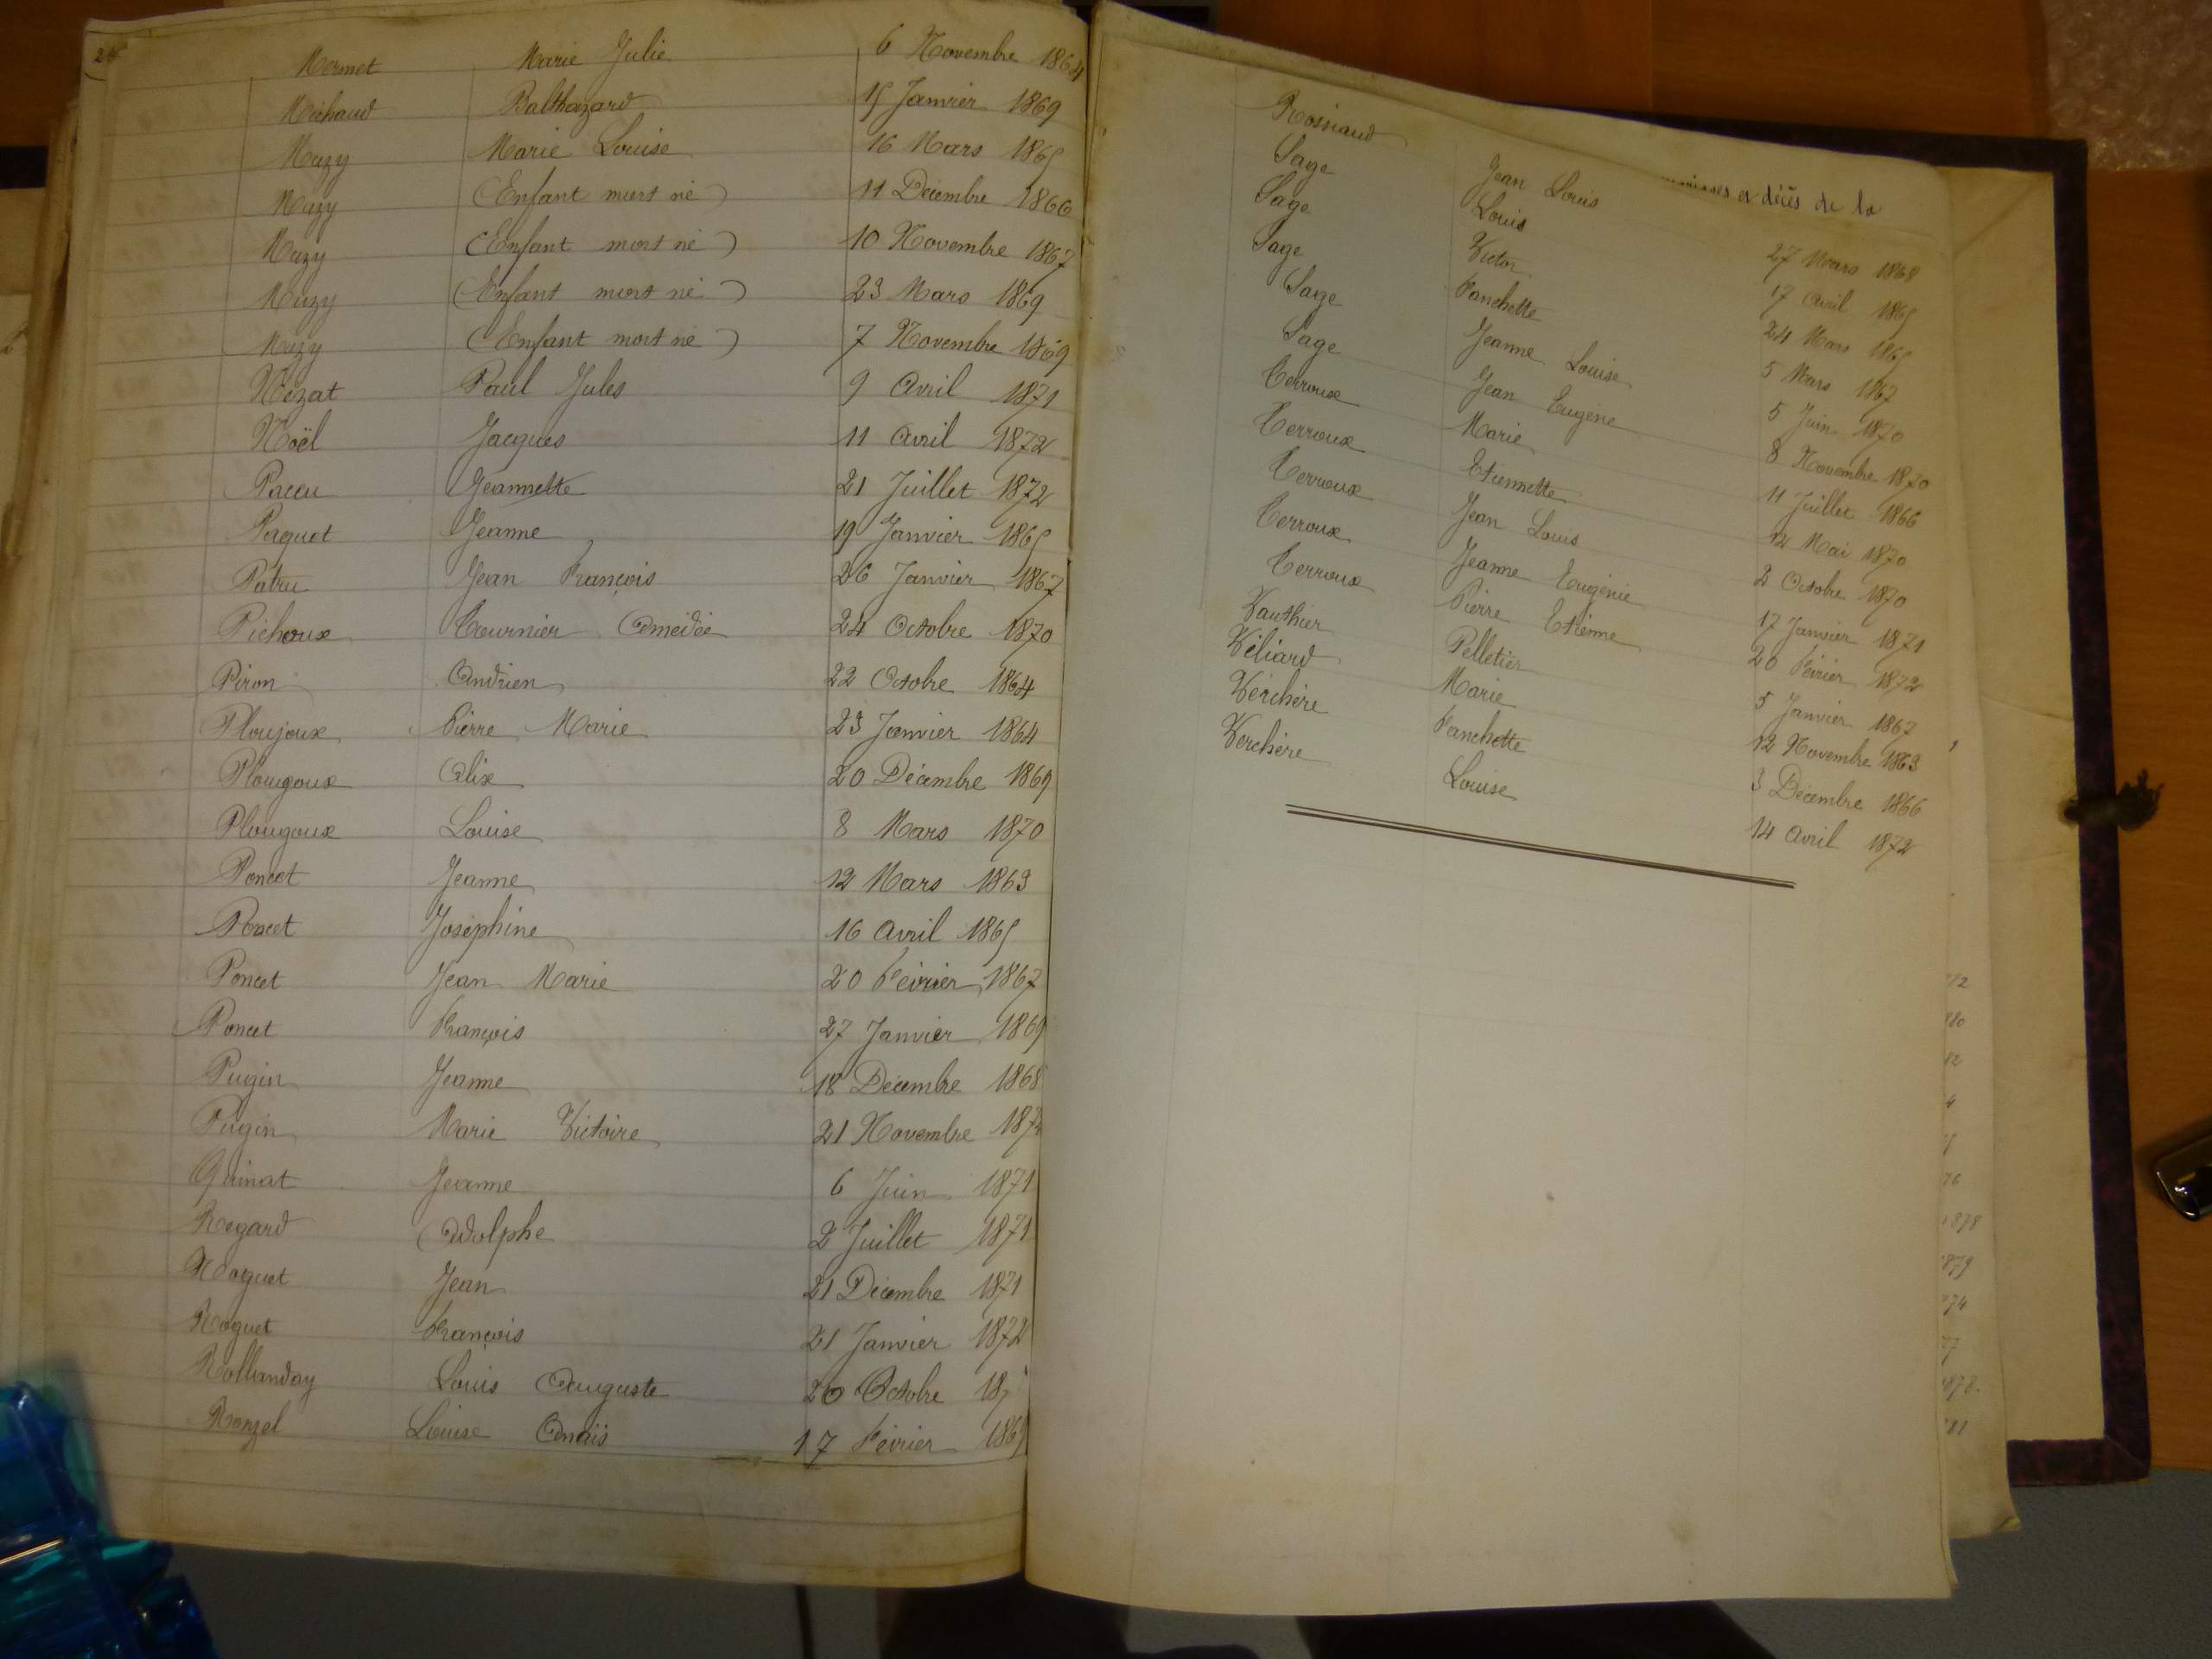 Mermet Marie Julie 6 Novembre 1864
Michaud Balthazard 15 Janvier 1869
Muzy Marie Louise 16 Mars 1865
Muzy (Enfant mort né) 11 Décembre 1866
Muzy (Enfant mort né) 10 Novembre 1867
Muzy (Enfant mort né) 23 Mars 1869
Muzy (Enfant mort né) 7 Novembre 1869
Nozat Paul Jules 9 Avril 1871
Noël Jacques 11 Avril 1872
Paccu Jeannette 21 Juillet 1872
Paquet Jeanne 19 Janvier 1865
Patru Jean François 26 Janvier 1867
Pichoux Tournier Amédée 24 Octobre 1870
Piron Andrien 22 Octobre 1864
Ploujoux Pierre Marie 23 Janvier 1864
Plougoux Alix 20 Décembre 1869
Plougoux Louise 8 Mars 1870
Poncet Jeanne 12 Mars 1863
Poncet Joséphine 16 Avril 1865
Poncet Jean Marie 20 Février 1867
Poncet François 27 Janvier 1869
Pugin Jeanne 18 Décembre 1868
Pugin Marie Victoire 21 Novembre
Quinat Jeanne 6 Juin 1871
Regard Adolphe 2 Juillet 1871
Roguet Jean 21 Décembre 1871
Roguet François 21 Janvier 1872
Rollanday Louis Auguste 20 Octobre
Ronzel Louise Anaïs 17 Février
Rossiaud Jean Louis 27 Mars 1868
Sage Louis 17 Avril 1865
Sage Victor 24 Mars 1865
Sage Fanchette 5 Mars 1867
Sage Jeanne Louise 5 Juin 1870
Sage Jean Eugène 8 Novembre 1870
Terroux Marie 11 Juillet 1866
Terroux Etiennette 12 Mai 1870
Terroux Jean Louis 2 Octobre 1870
Terroux Jeanne Eugénie 17 Janvier 1871
Terroux Pierre Etienne 20 Février 1872
Vauthier Pelletier 5 Janvier 1867
Véliard Marie 12 Novembre 1863
Verchère Fanchette 3 Décembre 1866
Verchère Louise 14 Avril 1872
et décès de la